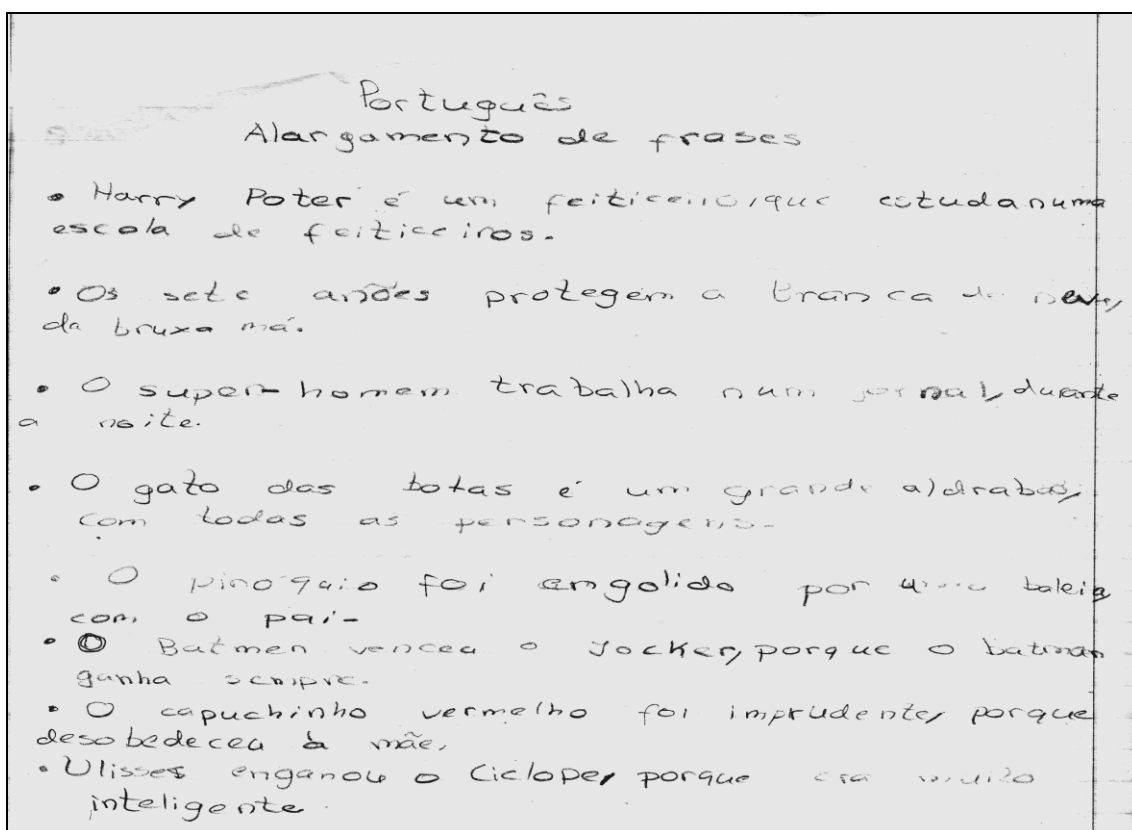 Português
Alargamento de frases
• Harry Poter é um feiticeiro, que estuda numa
escola de feiticeiros.
• Os sete anões protegem a branca de neve,
da bruxa má.
• O super-homem trabalha num jornal, durante
a noite.
• O gato das botas é um grande aldrabão,
com todas as personagens.
• O pinóquio foi engolido por uma baleia
com o pai.
• O Batmen venceu o Jocker, porque o batman
ganha sempre.
• O capuchinho vermelho foi imprudente, porque
desobedeceu à mãe.
• Ulisses enganou o Ciclope, porque era muito
inteligente